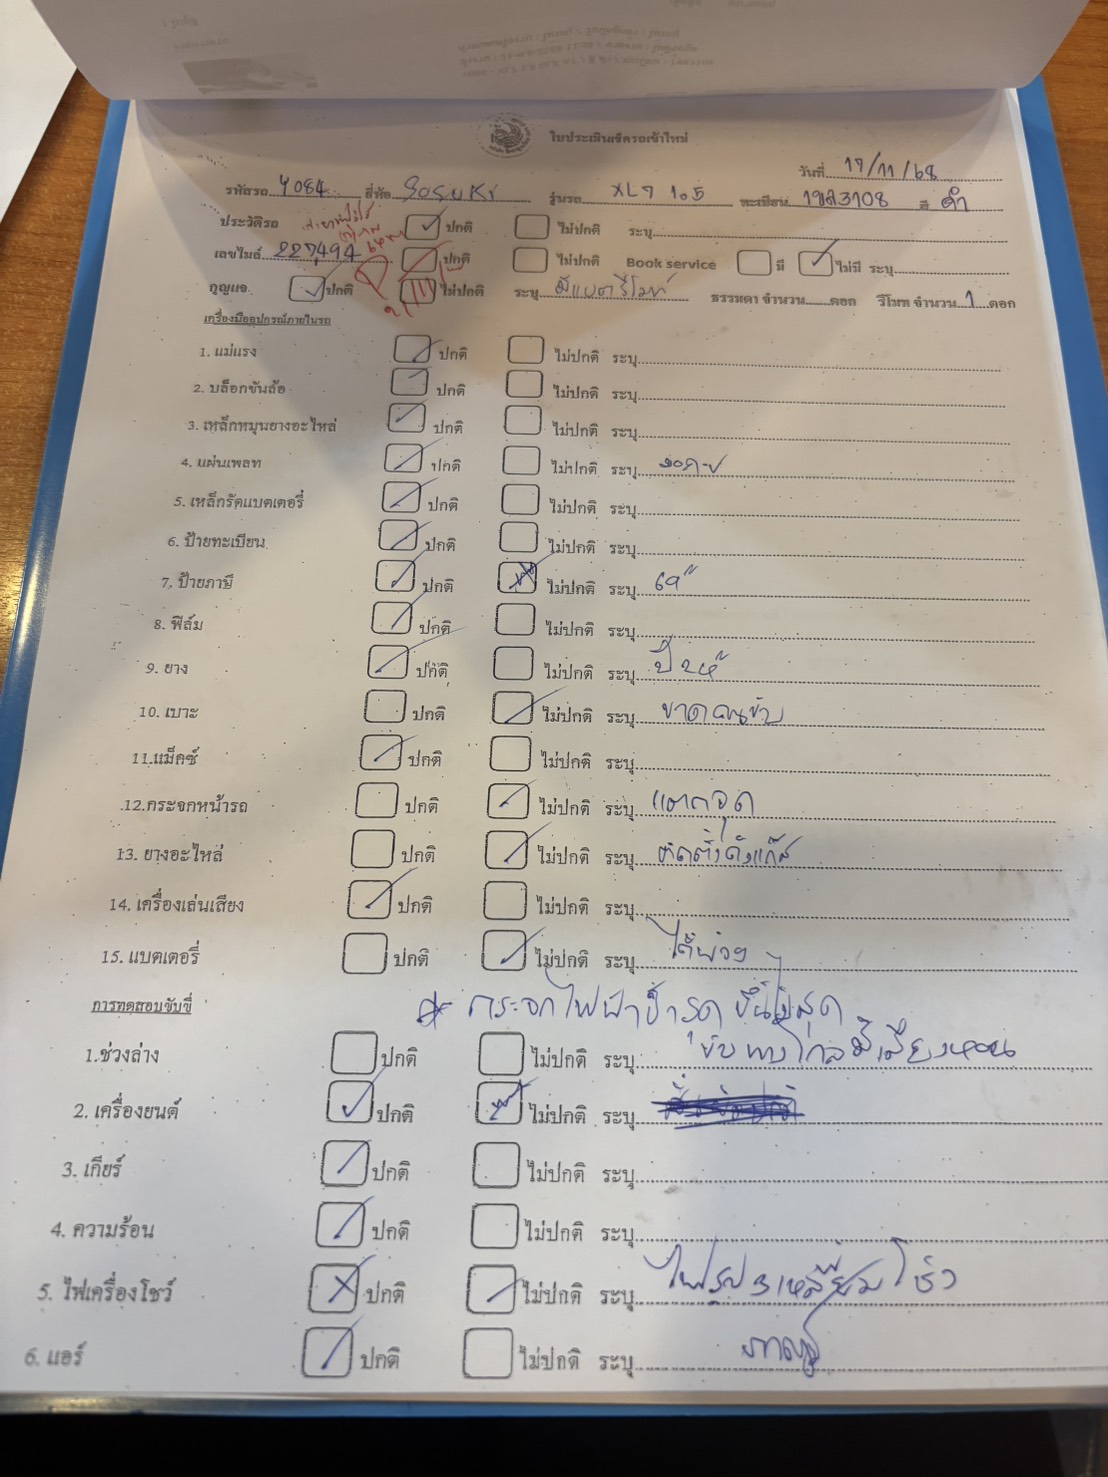 ใบประเมินเช็ครถเข้าใหม่
วันที่ 17/11/68
รหัสรถ 4084 ยี่ห้อ SUSUKI รุ่นรถ XL7 1.5 ทะเบียน 1ขส3108 สี ดำ
ประวัติรถ ปกติ ไม่ปกติ ระบุ
เลขไมล์ 227,494 ปกติ ไม่ปกติ Book service มี ไม่มี ระบุ
กุญแจ ปกติ ไม่ปกติ ระบุ ธรรมดา จำนวน ดอก รีโมท จำนวน 1 ดอก
เครื่องมืออุปกรณ์ภายในรถ
1. แม่แรง ปกติ ไม่ปกติ ระบุ
2. บล็อกขันล้อ ปกติ ไม่ปกติ ระบุ
3. เหล็กหมุนยางอะไหล่ ปกติ ไม่ปกติ ระบุ
4. แผ่นเพลท ปกติ ไม่ปกติ ระบุ
5. เหล็กรัดแบตเตอรี่ ปกติ ไม่ปกติ ระบุ
6. ป้ายทะเบียน ปกติ ไม่ปกติ ระบุ
7. ป้ายภาษี ปกติ ไม่ปกติ ระบุ 69
8. ฟิล์ม ปกติ ไม่ปกติ ระบุ
9. ยาง ปกติ ไม่ปกติ ระบุ
10. เบาะ ปกติ ไม่ปกติ ระบุ ขาดคนขับ
11.แม็คซ์ ปกติ ไม่ปกติ ระบุ
12.กระจกหน้ารถ ปกติ ไม่ปกติ ระบุ แตกจุด
13. ยางอะไหล่ ปกติ ไม่ปกติ ระบุ ติดตั้งถังแก๊ส
14. เครื่องเล่นเสียง ปกติ ไม่ปกติ ระบุ
15. แบตเตอรี่ ปกติ ไม่ปกติ ระบุ ได้พ่วง
การทดสอบขับขี่ * กระจกไฟฟ้าชำรุด ขึ้นไม่สุด
1.ช่วงล่าง ปกติ ไม่ปกติ ระบุ ขับทางไกลมีเสียงหอน
2. เครื่องยนต์ ปกติ ไม่ปกติ ระบุ
3. เกียร์ ปกติ ไม่ปกติ ระบุ
4. ความร้อน ปกติ ไม่ปกติ ระบุ
5. ไฟเครื่องโชว์ ปกติ ไม่ปกติ ระบุ ไฟรูป 3 เหลี่ยมโชว์
6. แอร์ ปกติ ไม่ปกติ ระบุ